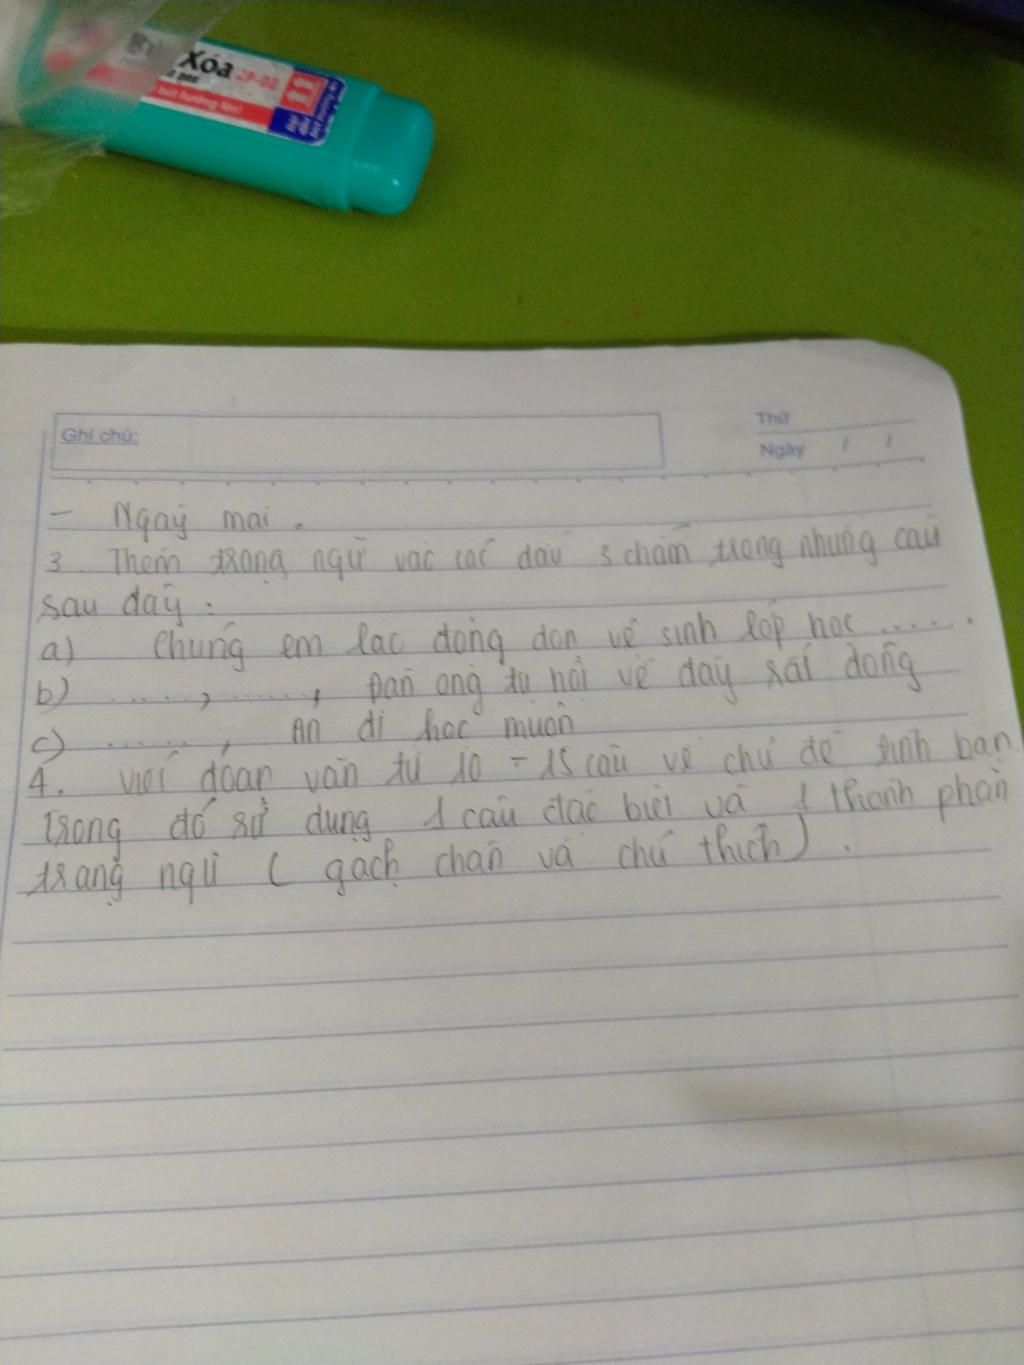 Xóa CP-02
Ghi chú:
Thứ
Ngày / /
- Ngaỳ mai.
3. Thêm trạng ngữ vào các dấu 3 chấm trong những câu
sau đây:
a) Chúng em lao động dọn vệ sinh lớp học .....
b) ....., ....., Đàn ong tụ hội về đây rất đông
c) ....., An đi học muộn
4. Viết đoạn văn từ 10 - 15 câu về chủ đề tình bạn
Trong đó sử dụng 1 câu đặc biệt và 1 thành phần
trạng ngữ ( gạch chân và chú thích).